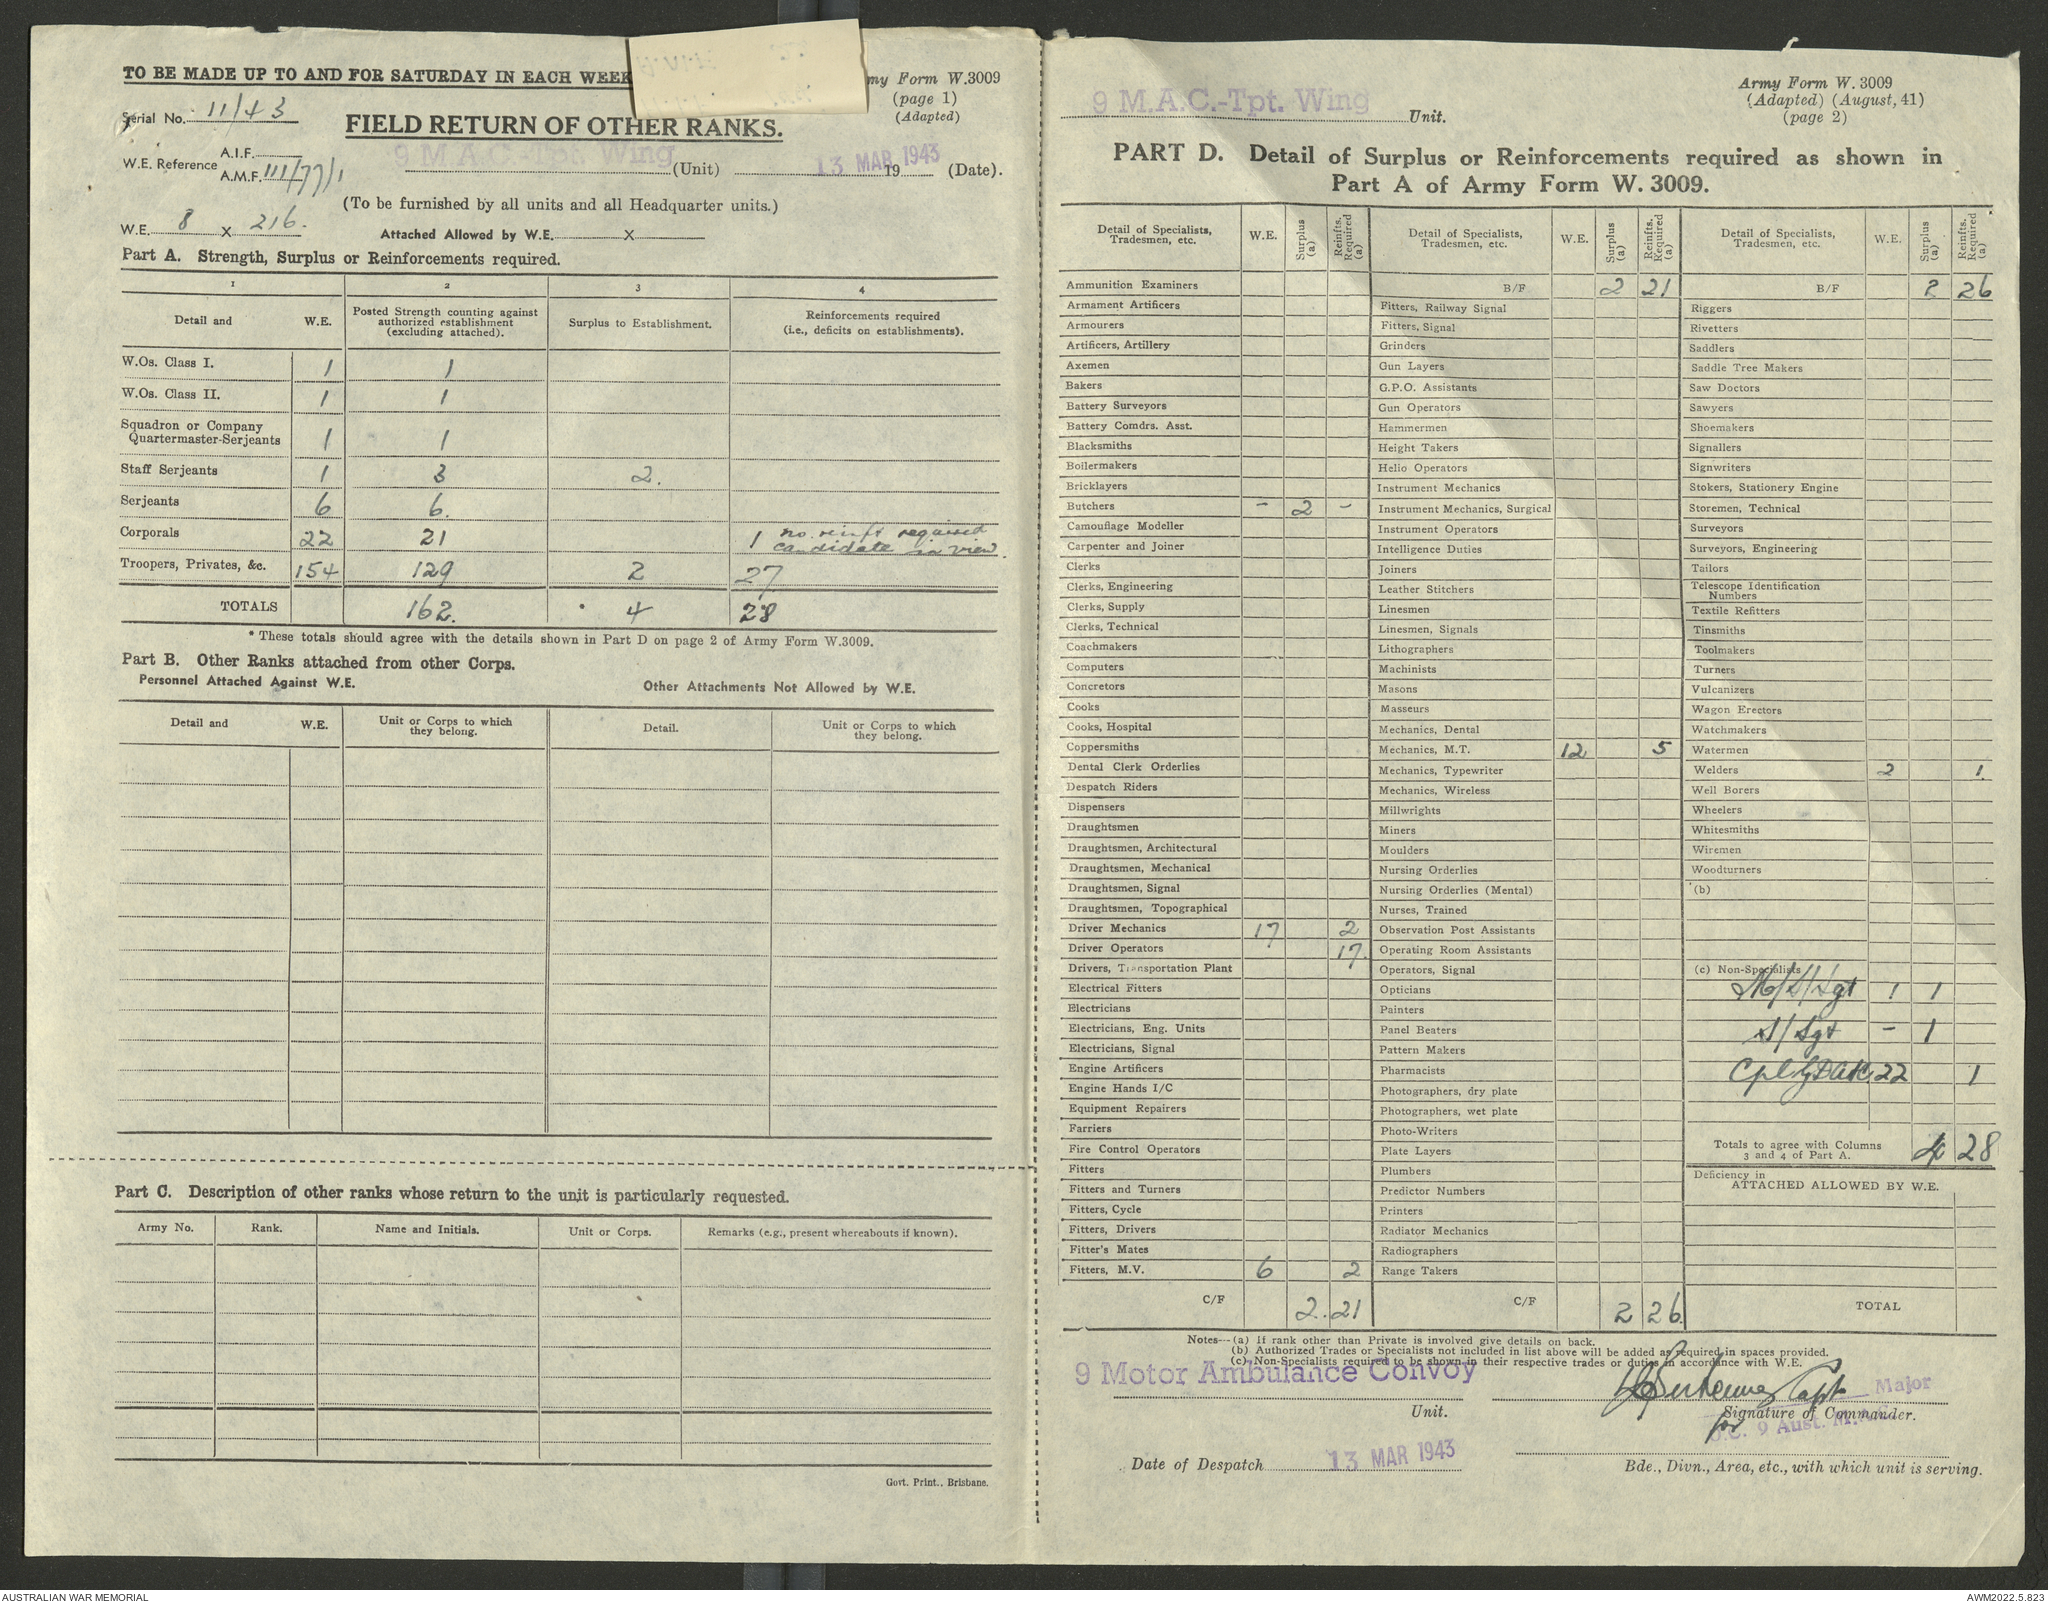 TO BE MADE UP TO AND FOR SATURDAY IN EACH WEEK
Army Form W.3009
(page 1)
(Adapted)
Serial No. 11/43
FIELD RETURN OF OTHER RANKS.
W.E. Reference A.I.F.
A.M.F. 111/77/1
9 M.A.C.-Tpt. Wing (Unit) 13 MAR 1943 19 (Date).
(To be furnished by all units and all Headquarter units.)
W.E. 8 X 216.
Attached Allowed by W.E. X
Part A. Strength, Surplus or Reinforcements required.
1 2 3 4
Detail and W.E. Posted Strength counting against authorized establishment (excluding attached). Surplus to Establishment. Reinforcements required (i.e., deficits on establishments).
W.Os. Class I. 1 1
W.Os. Class II. 1 1
Squadron or Company
Quartermaster-Serjeants 1 1
Staff Serjeants 1 3 2.
Serjeants 6 6.
Corporals 22 21 1 no reinft required
candidate in view.
Troopers, Privates, &c. 154 129 2 27
TOTALS 162. * 4 28
* These totals should agree with the details shown in Part D on page 2 of Army Form W.3009.
Part B. Other Ranks attached from other Corps.
Personnel Attached Against W.E. Other Attachments Not Allowed by W.E.
Detail and W.E. Unit or Corps to which they belong. Detail. Unit or Corps to which they belong.
Part C. Description of other ranks whose return to the unit is particularly requested.
Army No. Rank. Name and Initials. Unit or Corps. Remarks (e.g., present whereabouts if known).
Govt. Print., Brisbane.
9 M.A.C.-Tpt. Wing Unit.
Army Form W. 3009
(Adapted) (August, 41)
(page 2)
PART D. Detail of Surplus or Reinforcements required as shown in
Part A of Army Form W. 3009.
Detail of Specialists, Tradesmen, etc. W.E. Surplus (a) Reinfts. Required (a)
Ammunition Examiners
Armament Artificers
Armourers
Artificers, Artillery
Axemen
Bakers
Battery Surveyors
Battery Comdrs. Asst.
Blacksmiths
Boilermakers
Bricklayers
Butchers - 2 -
Camouflage Modeller
Carpenter and Joiner
Clerks
Clerks, Engineering
Clerks, Supply
Clerks, Technical
Coachmakers
Computers
Concretors
Cooks
Cooks, Hospital
Coppersmiths
Dental Clerk Orderlies
Despatch Riders
Dispensers
Draughtsmen
Draughtsmen, Architectural
Draughtsmen, Mechanical
Draughtsmen, Signal
Draughtsmen, Topographical
Driver Mechanics 17 2
Driver Operators 17.
Drivers, Transportation Plant
Electrical Fitters
Electricians
Electricians, Eng. Units
Electricians, Signal
Engine Artificers
Engine Hands I/C
Equipment Repairers
Farriers
Fire Control Operators
Fitters
Fitters and Turners
Fitters, Cycle
Fitters, Drivers
Fitter's Mates
Fitters, M.V. 6 2
C/F 2. 21
Detail of Specialists, Tradesmen, etc. W.E. Surplus (a) Reinfts. Required (a)
B/F 2 21
Fitters, Railway Signal
Fitters, Signal
Grinders
Gun Layers
G.P.O. Assistants
Gun Operators
Hammermen
Height Takers
Helio Operators
Instrument Mechanics
Instrument Mechanics, Surgical
Instrument Operators
Intelligence Duties
Joiners
Leather Stitchers
Linesmen
Linesmen, Signals
Lithographers
Machinists
Masons
Masseurs
Mechanics, Dental
Mechanics, M.T. 12 5
Mechanics, Typewriter
Mechanics, Wireless
Millwrights
Miners
Moulders
Nursing Orderlies
Nursing Orderlies (Mental)
Nurses, Trained
Observation Post Assistants
Operating Room Assistants
Operators, Signal
Opticians
Painters
Panel Beaters
Pattern Makers
Pharmacists
Photographers, dry plate
Photographers, wet plate
Photo-Writers
Plate Layers
Plumbers
Predictor Numbers
Printers
Radiator Mechanics
Radiographers
Range Takers
C/F 2 26
Detail of Specialists, Tradesmen, etc. W.E. Surplus (a) Reinfts. Required (a)
B/F 2 26
Riggers
Rivetters
Saddlers
Saddle Tree Makers
Saw Doctors
Sawyers
Shoemakers
Signallers
Signwriters
Stokers, Stationery Engine
Storemen, Technical
Surveyors
Surveyors, Engineering
Tailors
Telescope Identification
Numbers
Textile Refitters
Tinsmiths
Toolmakers
Turners
Vulcanizers
Wagon Erectors
Watchmakers
Watermen
Welders 2 1.
Well Borers
Wheelers
Whitesmiths
Wiremen
Woodturners
(b)
(c) Non-Specialists
1 1
S/Sgt - 1
Cpl 22 1
Totals to agree with Columns
3 and 4 of Part A. 4 28
Deficiency in
ATTACHED ALLOWED BY W.E.
TOTAL
Notes—(a) If rank other than Private is involved give details on back.
(b) Authorized Trades or Specialists not included in list above will be added as required in spaces provided.
(c) Non-Specialists required to be shown in their respective trades or duties in accordance with W.E.
9 Motor Ambulance Convoy
Unit.
Capt Major
Signature of Commander.
for O.C. 9 Aust. M.A.C.
Date of Despatch 13 MAR 1943
Bde., Divn., Area, etc., with which unit is serving.
AUSTRALIAN WAR MEMORIAL
AWM2022.5.823